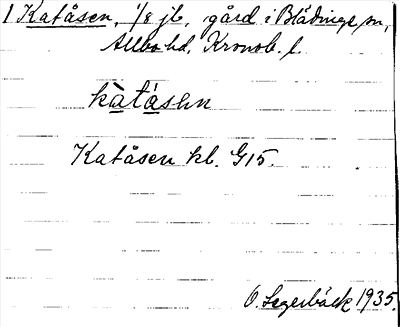 1 Katåsen, 1/8 jb, gård i Blädinge sn,
Allbo hd, Kronob. l.
kàtásen
Katåsen kl. G15.
O. Segerbäck 1935.